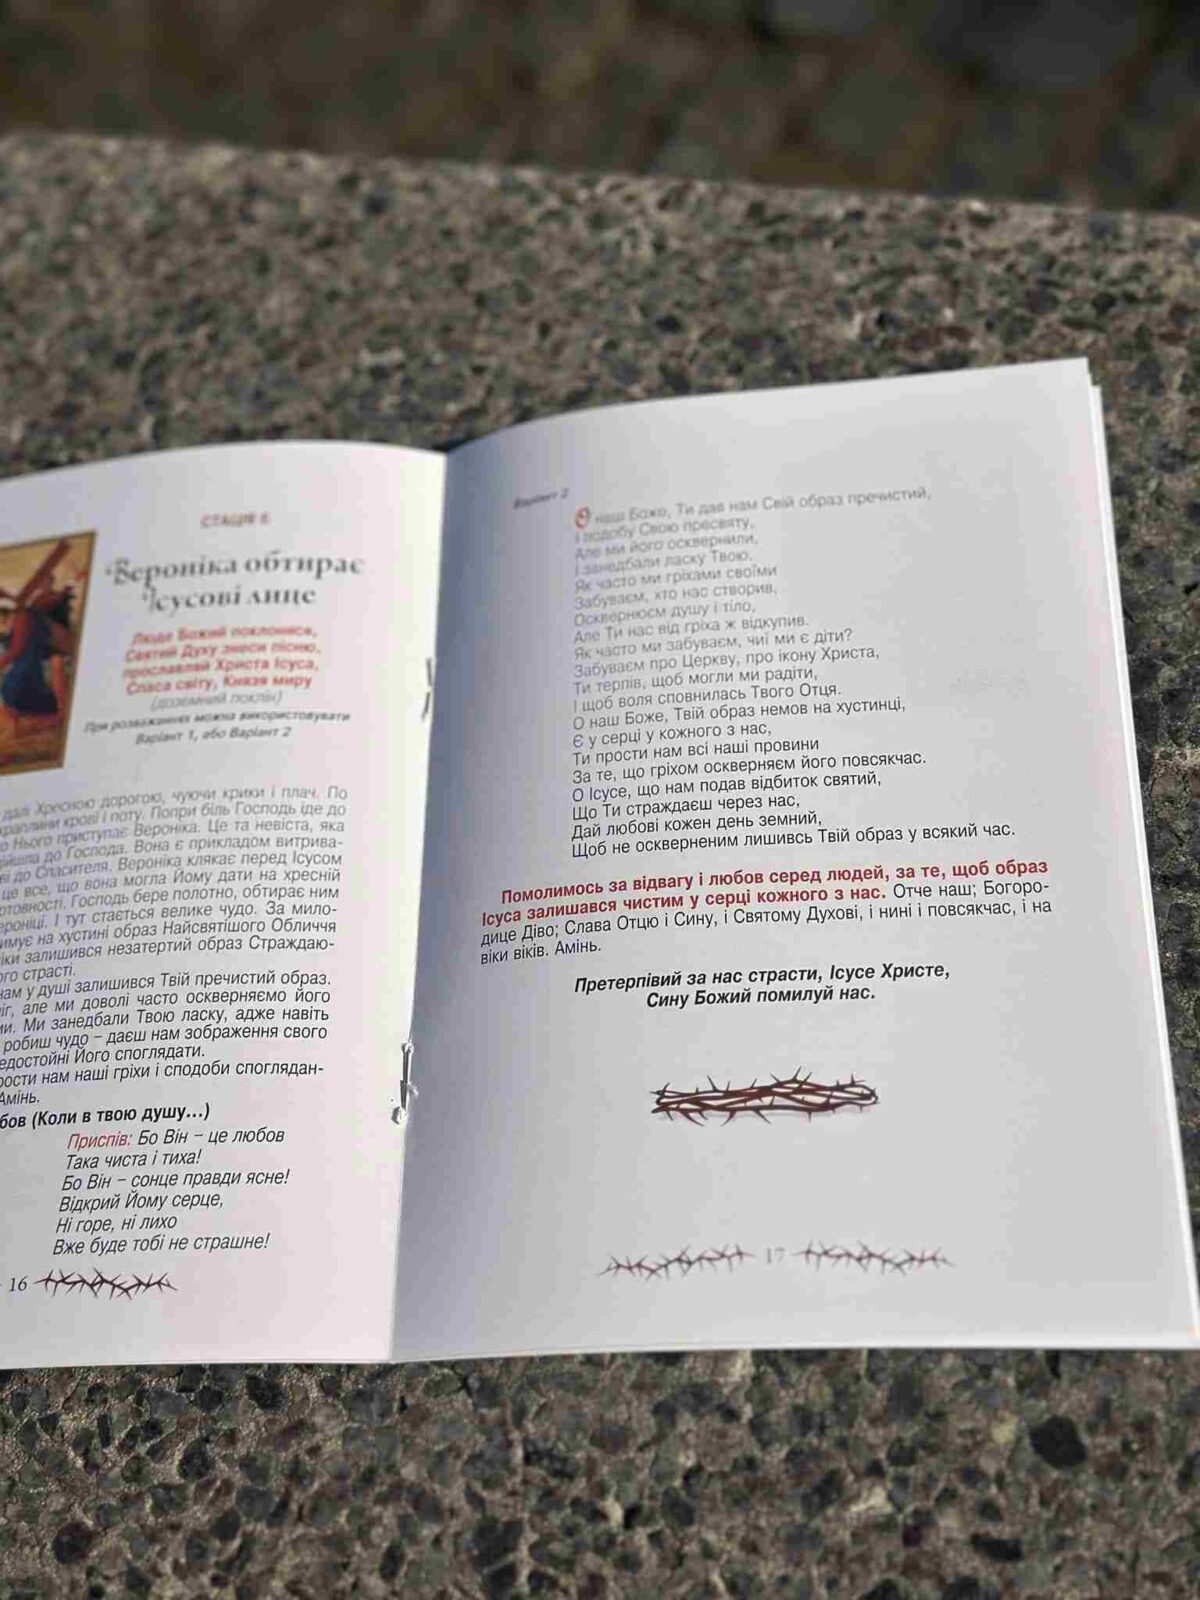 СТАЦІЯ 6
Вероніка обтирає
Ісусові лице
Люде Божий поклонися,
Святий Духу знеси пісню,
прославляй Христа Ісуса,
Спаса світу, Князя миру
(доземний поклін)
При розважаннях можна використовувати
Варіант 1, або Варіант 2
далі Хресною дорогою, чуючи крики і плач. По
краплини крові і поту. Попри біль Господь іде до
Нього приступає Вероніка. Це та невіста, яка
до Господа. Вона є прикладом витрива-
до Спасителя. Вероніка клякає перед Ісусом
це все, що вона могла Йому дати на хресній
Господь бере полотно, обтирає ним
І тут стається велике чудо. За мило-
на хустині образ Найсвятішого Обличчя
залишився незатертий образ Страждаю-
страсті.
нам у душі залишився Твій пречистий образ.
але ми доволі часто оскверняємо його
Ми занедбали Твою ласку, адже навіть
робиш чудо – даєш нам зображення свого
Його споглядати.
нам наші гріхи і сподоби споглядан-
Амінь.
(Коли в твою душу...)
Приспів: Бо Він – це любов
Така чиста і тиха!
Бо Він – сонце правди ясне!
Відкрий Йому серце,
Ні горе, ні лихо
Вже буде тобі не страшне!
16
Варіант 2
О наш Боже, Ти дав нам Свій образ пречистий,
І подобу Свою пресвяту,
Але ми його осквернили,
І занедбали ласку Твою.
Як часто ми гріхами своїми
Забуваєм, хто нас створив,
Осквернюєм душу і тіло,
Але Ти нас від гріха ж відкупив.
Як часто ми забуваєм, чиї ми є діти?
Забуваєм про Церкву, про ікону Христа,
Ти терпів, щоб могли ми радіти,
І щоб воля сповнилась Твого Отця.
О наш Боже, Твій образ немов на хустинці,
Є у серці у кожного з нас,
Ти прости нам всі наші провини
За те, що гріхом оскверняєм його повсякчас.
О Ісусе, що нам подав відбиток святий,
Що Ти страждаєш через нас,
Дай любові кожен день земний,
Щоб не оскверненим лишивсь Твій образ у всякий час.
Помолимось за відвагу і любов серед людей, за те, щоб образ
Ісуса залишався чистим у серці кожного з нас. Отче наш; Богоро-
дице Діво; Слава Отцю і Сину, і Святому Духові, і нині і повсякчас, і на
віки віків. Амінь.
Претерпівий за нас страсти, Ісусе Христе,
Сину Божий помилуй нас.
17